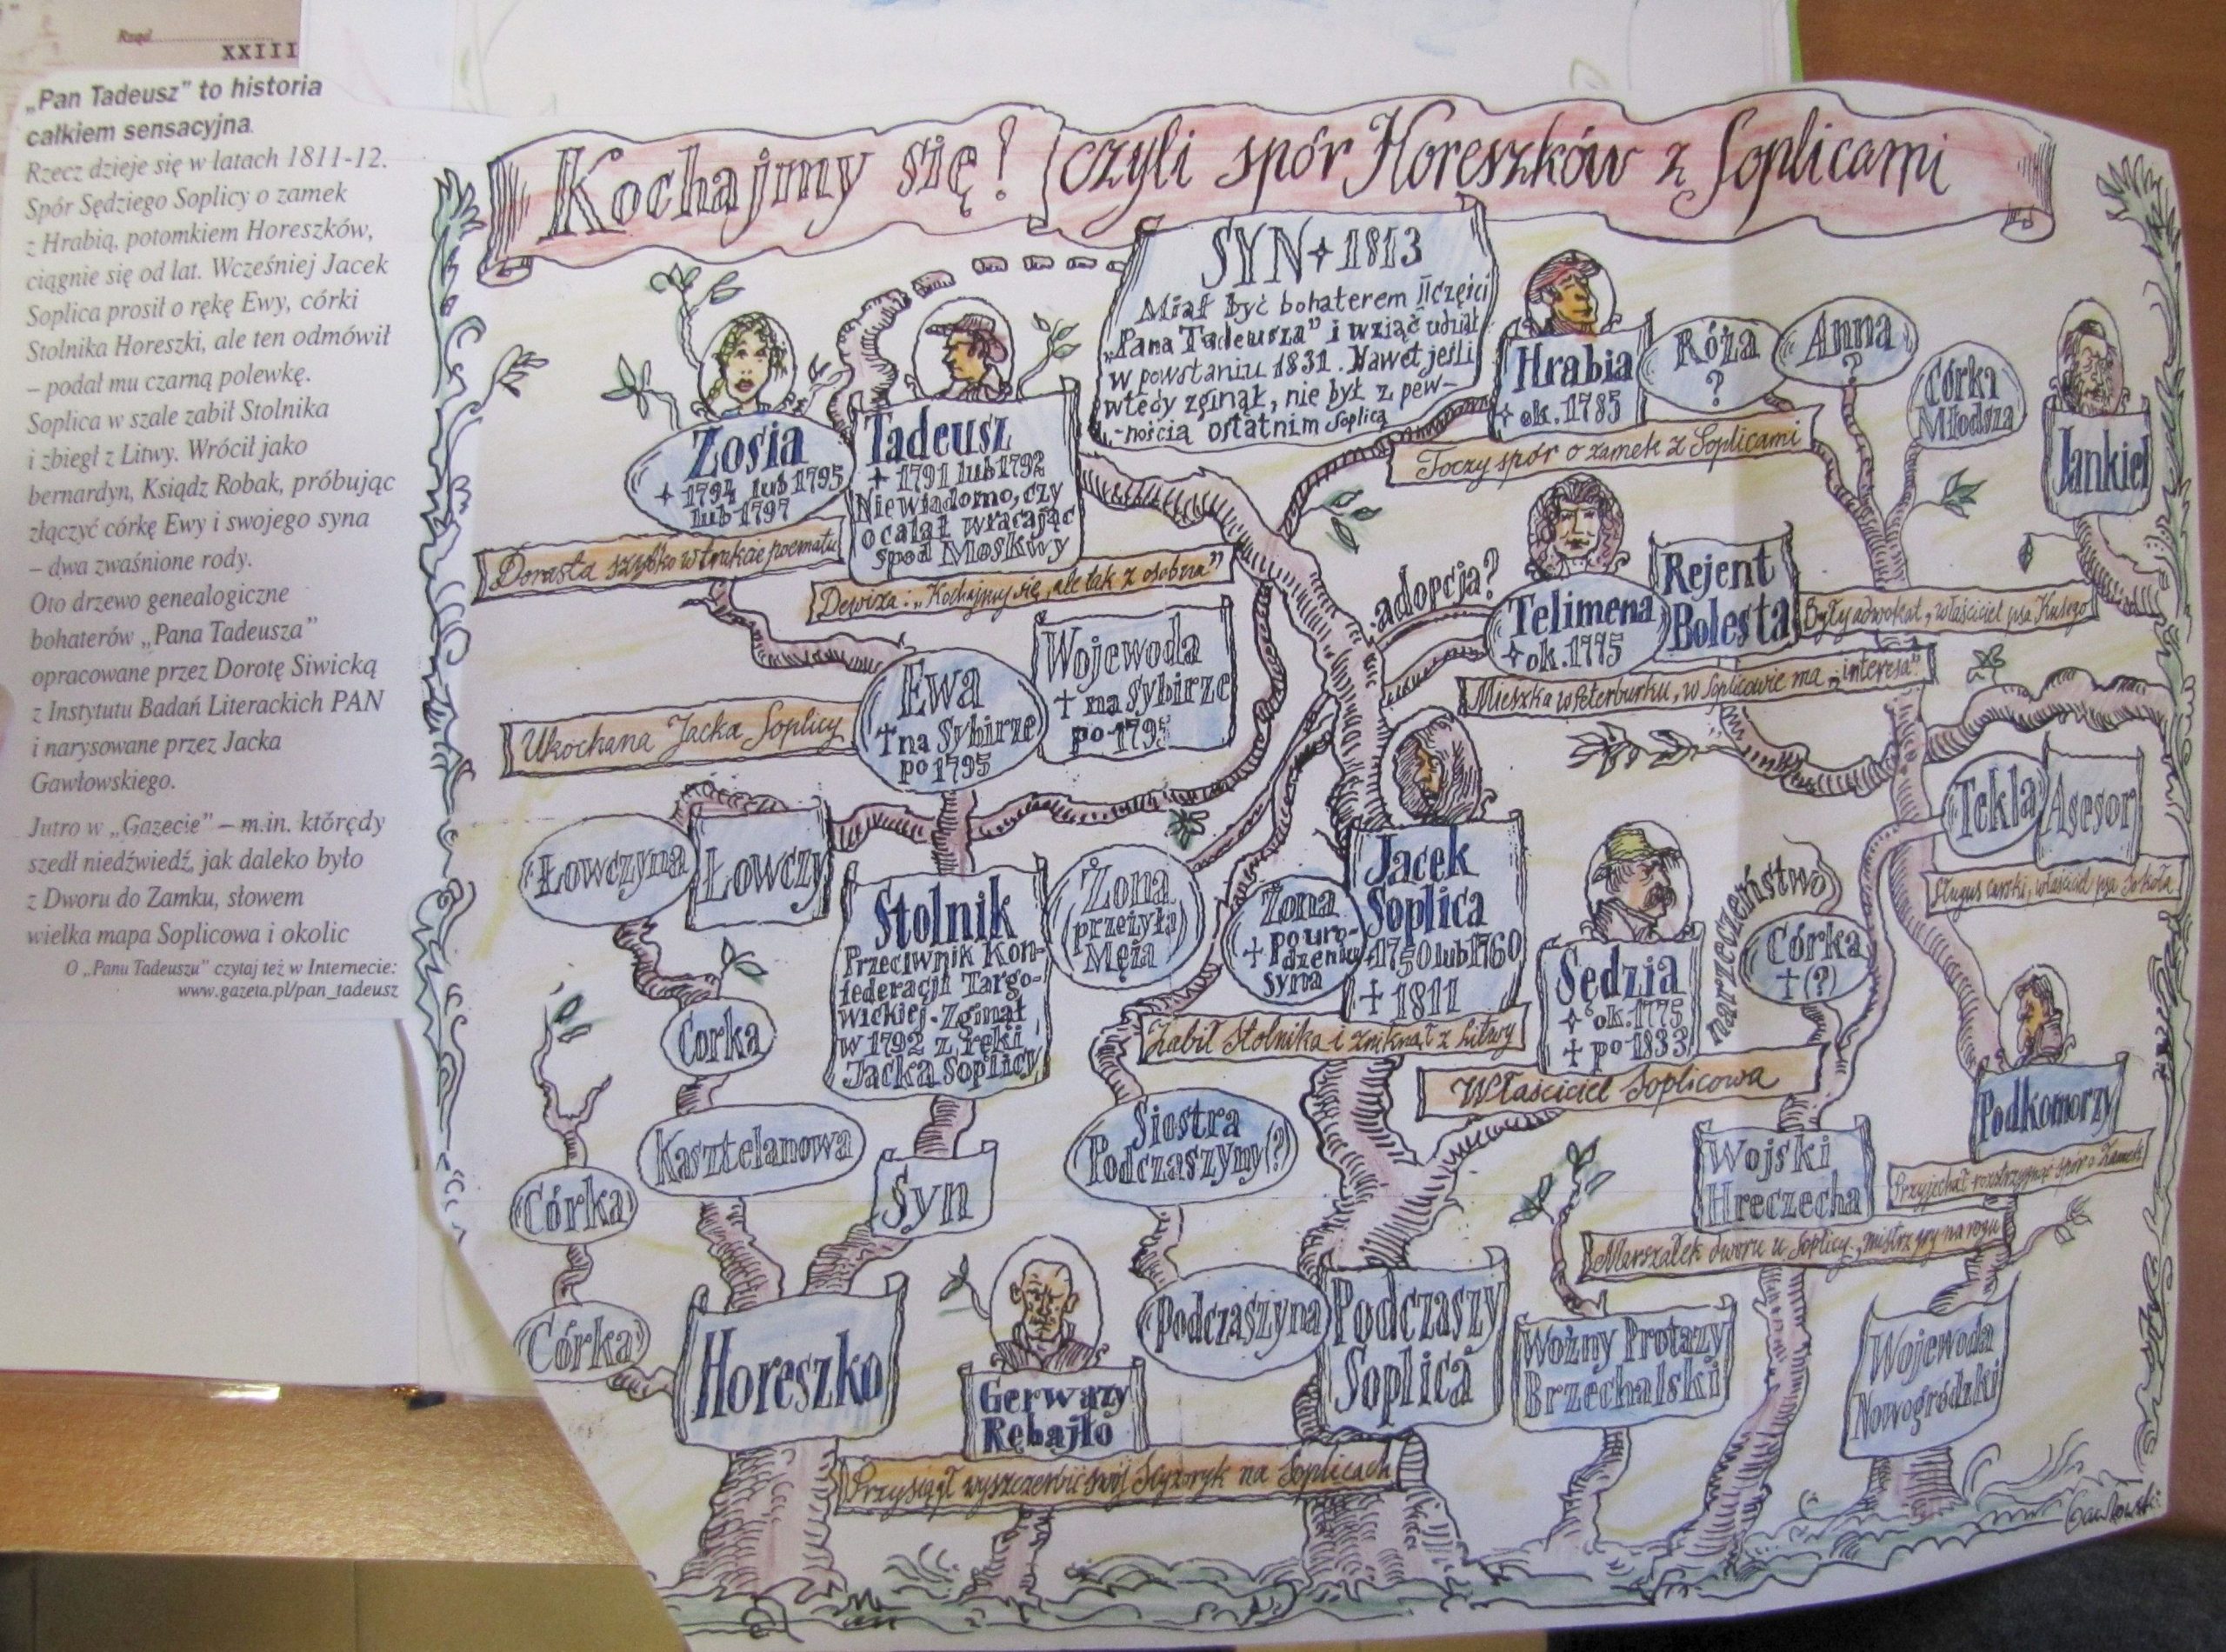 Rząd
XXIII
„Pan Tadeusz” to historia
całkiem sensacyjna.
Rzecz dzieje się w latach 1811-12.
Spór Sędziego Soplicy o zamek
z Hrabią, potomkiem Horeszków,
ciągnie się od lat. Wcześniej Jacek
Soplica prosił o rękę Ewy, córki
Stolnika Horeszki, ale ten odmówił
– podał mu czarną polewkę.
Soplica w szale zabił Stolnika
i zbiegł z Litwy. Wrócił jako
bernardyn, Ksiądz Robak, próbując
złączyć córkę Ewy i swojego syna
– dwa zwaśnione rody.
Oto drzewo genealogiczne
bohaterów „Pana Tadeusza”
opracowane przez Dorotę Siwicką
z Instytutu Badań Literackich PAN
i narysowane przez Jacka
Gawłowskiego.
Jutro w „Gazecie” – m.in. którędy
szedł niedźwiedź, jak daleko było
z Dworu do Zamku, słowem
wielka mapa Soplicowa i okolic
O „Panu Tadeuszu” czytaj też w Internecie:
www.gazeta.pl/pan_tadeusz
Kochajmy się! czyli spór Horeszków z Soplicami
SYN + 1813
Miał być bohaterem II części
„Pana Tadeusza” i wziąć udział
w powstaniu 1831. Nawet jeśli
wtedy zginął, nie był z pew-
-nością ostatnim Soplicą
Hrabia
+ ok. 1785
Toczy spór o zamek z Soplicami
Róża
?
Anna
?
Córka
Młodsza
Jankiel
Zosia
+ 1794 lub 1795
lub 1797
Dorasta szybko w trakcie poematu
Tadeusz
+ 1791 lub 1792
Niewiadomo, czy
ocalał wracając
spod Moskwy
Dewiza: „Kochajmy się, ale tak z osobna”
adopcja?
Telimena
+ ok. 1775
Rejent
Bolesta
Były adwokat, właściciel psa Kusego
Mieszka w Peterburku, w Soplicowie ma „interesa”
Ewa
+ na Sybirze
po 1795
Wojewoda
+ na Sybirze
po 1795
Ukochana Jacka Soplicy
Tekla
Asesor
Sługus carski, właściciel psa Sokoła
Łowczyna
Łowczy
Stolnik
Przeciwnik Kon-
federacji Targo-
wickiej. Zginął
w 1792 z ręki
Jacka Soplicy
Żona
(przeżyła
Męża
Żona
+ po uro-
dzeniu
syna
Jacek
Soplica
+ 1750 lub 1760
+ 1811
Zabił Stolnika i zniknął z Litwy
Sędzia
+ ok. 1775
+ po 1833
Właściciel Soplicowa
narzeczeństwo
Córka
+ (?)
Podkomorzy
Przyjechał rozstrzygnąć spór o Zamek
Córka
Kasztelanowa
Syn
Córka
Córka
Siostra
Podczaszyny(?)
Wojski
Hreczecha
Marszałek dworu u Soplicy, mistrz gry na rogu
Horeszko
Gerwazy
Rębajło
Przysiągł wyszczerbić swój Scyzoryk na Soplicach
Podczaszyna
Podczaszy
Soplica
Woźny Protazy
Brzechalski
Wojewoda
Nowogródzki
Gawłowski